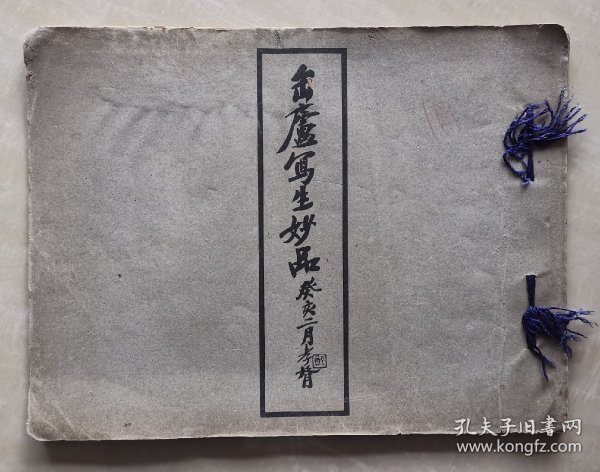 缶廬寫生妙品
癸亥二月孝胥
孔夫子旧书网
www.kongfz.com